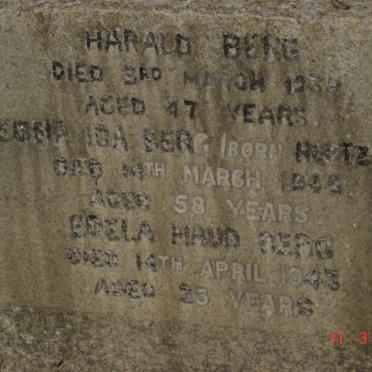 HARALD BERG
DIED 3RD MARCH 1938
AGED 47 YEARS
EMMA IDA BERG (BORN
DIED 14TH MARCH 1945.
AGED 58 YEARS.
EDELA MAUD BERG
DIED 14TH APRIL 1943
AGED 23 YEARS
11 3